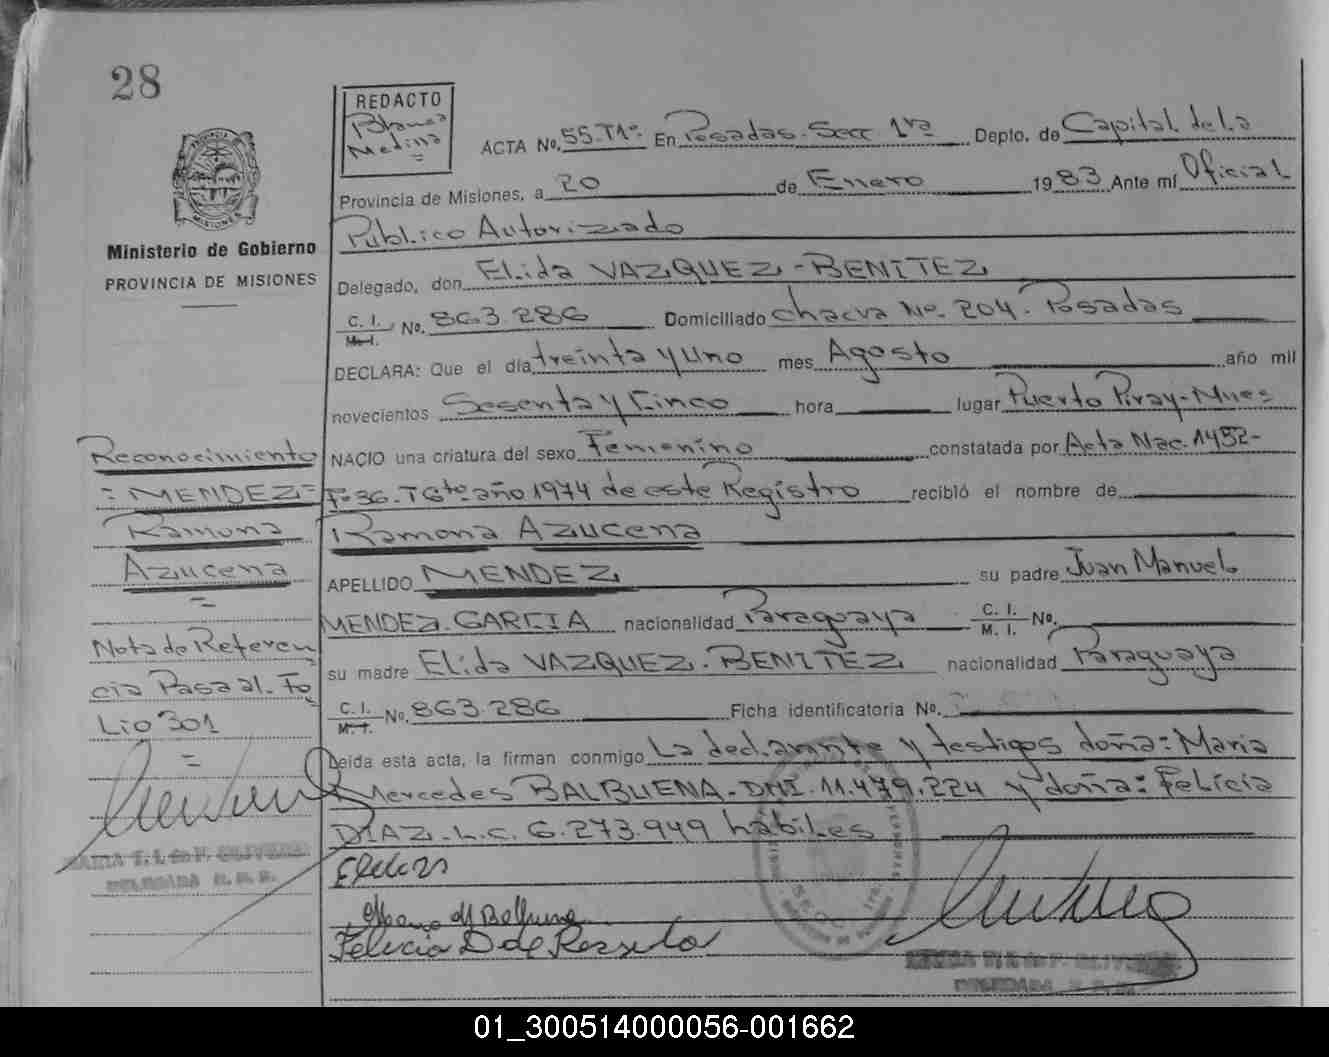 28
REDACTO
Blanca
Medina
=
ACTA No. 55-T1º En Posadas-Secc 1ra Depto. de Capital de La
Provincia de Misiones, a 20 de Enero 1983 Ante mí Oficial
Publico Autorizado
Delegado, don Elida VAZQUEZ-BENITEZ
C. I.
M. I. No. 863.286 Domiciliado Chacra No. 204. Posadas
DECLARA: Que el día treinta y Uno mes Agosto año mil
novecientos Sesenta y Cinco hora lugar Puerto Piray-Mnes
NACIO una criatura del sexo Femenino constatada por Acta Nac. 1452-
Fº 36-T6to año 1974 de este Registro recibió el nombre de
Ramona Azucena
APELLIDO MENDEZ su padre Juan Manuel
MENDEZ-GARCIA nacionalidad Paraguaya C. I.
M. I. No.
su madre Elida VAZQUEZ-BENITEZ nacionalidad Paraguaya
C. I.
M. I. No. 863.286 Ficha identificatoria No.
Leída esta acta, la firman conmigo La declarante y testigos doña: Maria
Mercedes BALBUENA-DNI.11.479.224 y doña: Felicia
DIAZ-L.C. 6.273.949 habiles
Felicia D de
PROVINCIA
MISIONES
Ministerio de Gobierno
PROVINCIA DE MISIONES
Reconocimiento
=MENDEZ=
Ramona
Azucena
=
Nota de Referen
cia Pasa al Fo
Lio 301
=
DELEGADA
DELEGADA
01_300514000056-001662